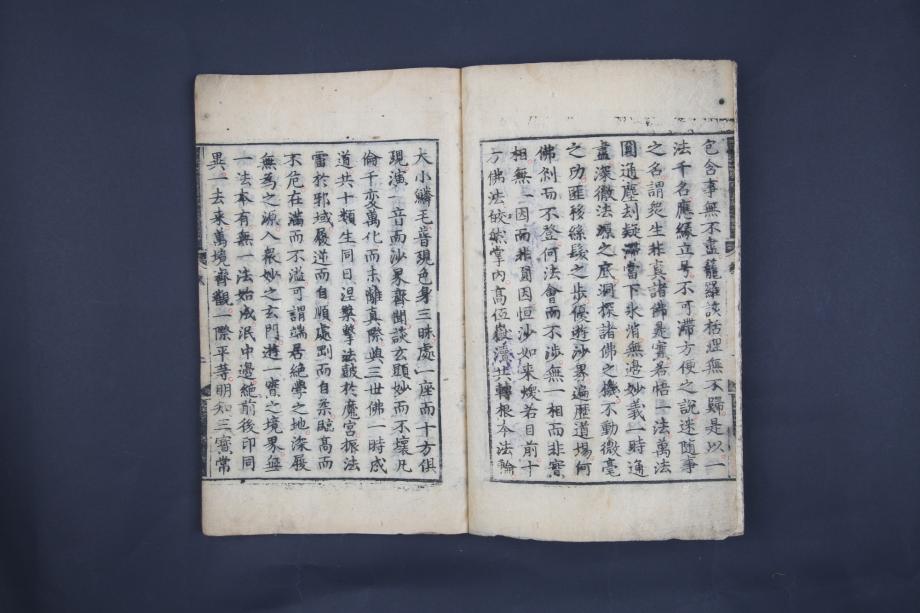 包含事無不盡籠羅談栝理無不歸是以一
法千名應緣立号不可滯方便之說迷隨事
之名謂衆生非眞諸佛是實若悟一法萬法
圓通塵刼疑滯當下氷消無邊妙義一時通
盡深徹法源之底洞探諸佛之機不動微毫
之功匪移絲髮之步優遊沙界遍歷道場何
佛刹而不登何法會而不涉無一相而非實
相無一因而非圓因恒沙如來煥若目前十
方佛法皎然掌內高低嶽瀆共轉根本法輪
大小鱗毛普現色身三昧處一座而十方俱
現演一音而沙界齊聞談玄顯妙而不壞凡
倫千變萬化而未離眞際與三世佛一時成
道共十類生同日涅槃擊法鼓於魔宮振法
雷於邪域履逆而自順處剛而自柔臨高而
不危在滿而不溢可謂端居絶學之地深履
無爲之源入衆妙之玄門遊一實之境界無
一法本有無一法始成泯中邊絶前後印同
異一去來萬境齊觀一際平等明知三寶常